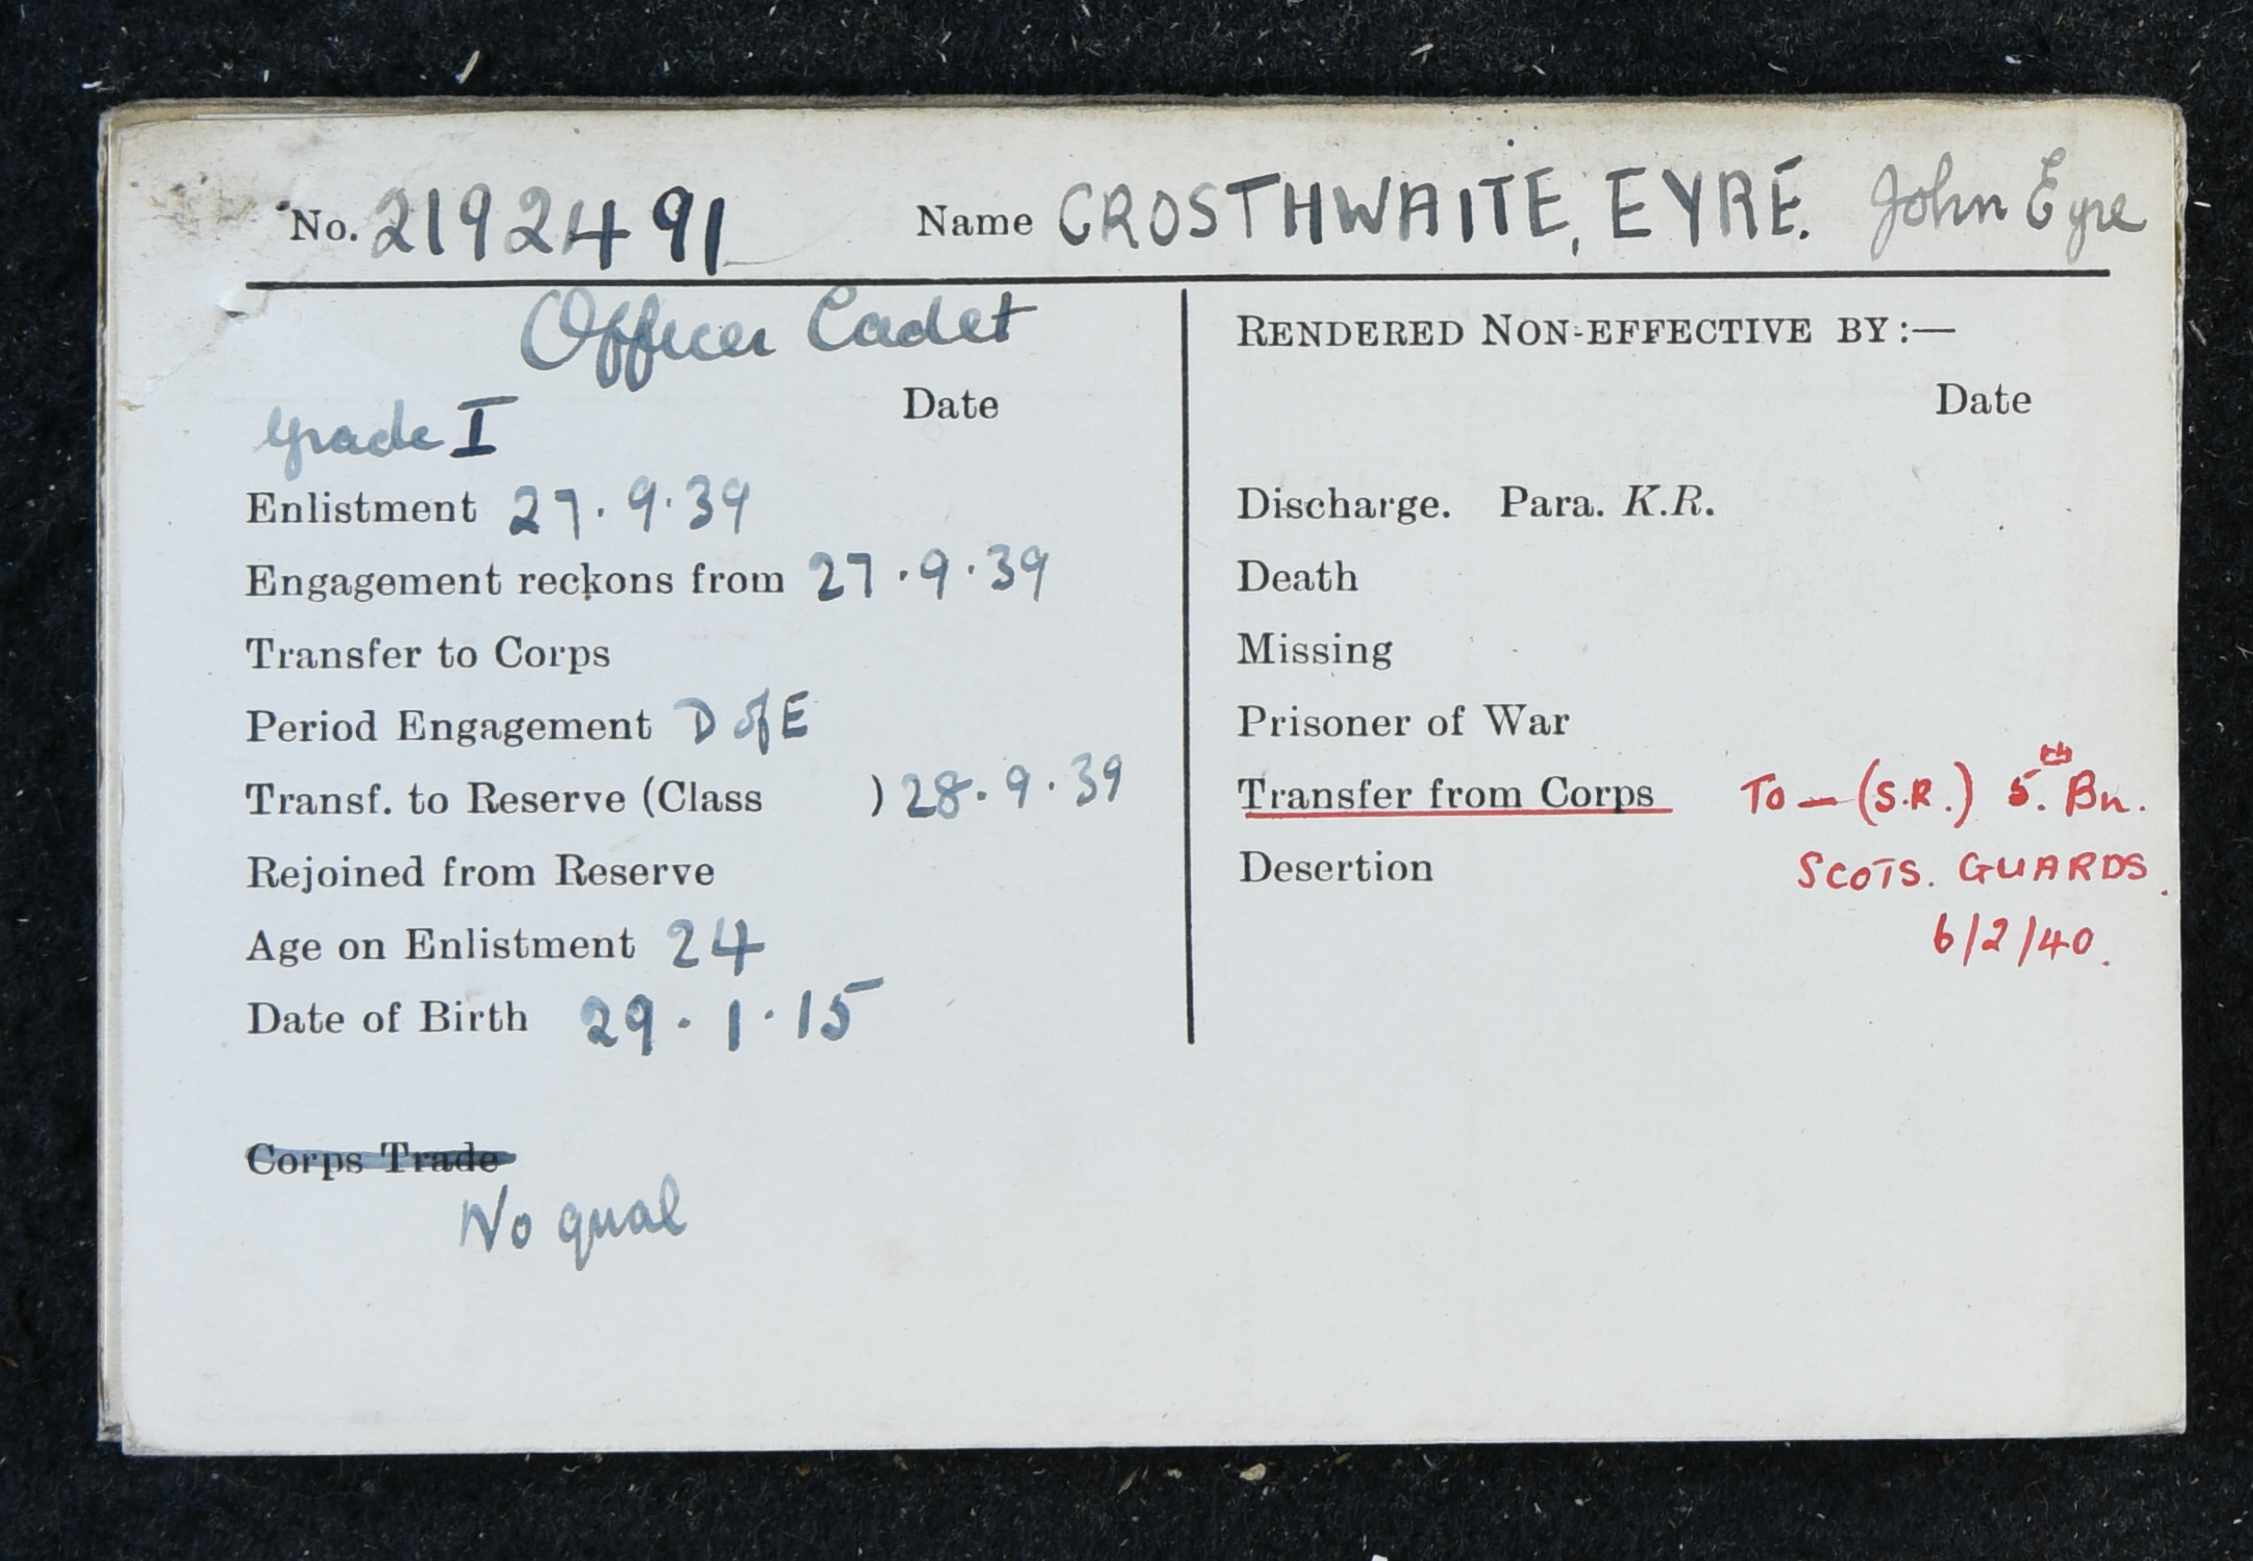 No. 2192491 Name CROSTHWAITE, EYRE. John Eyre
Officer Cadet
Date
Grade I
Enlistment 27.9.39
Engagement reckons from 27.9.39
Transfer to Corps
Period Engagement D of E
Transf. to Reserve (Class ) 28.9.39
Rejoined from Reserve
Age on Enlistment 24
Date of Birth 29.1.15
Corps Trade
No qual
RENDERED NON-EFFECTIVE BY:—
Date
Discharge. Para. K.R.
Death
Missing
Prisoner of War
Transfer from Corps To — (S.R.) 5.th Bn.
Desertion SCOTS. GUARDS.
6/2/40.